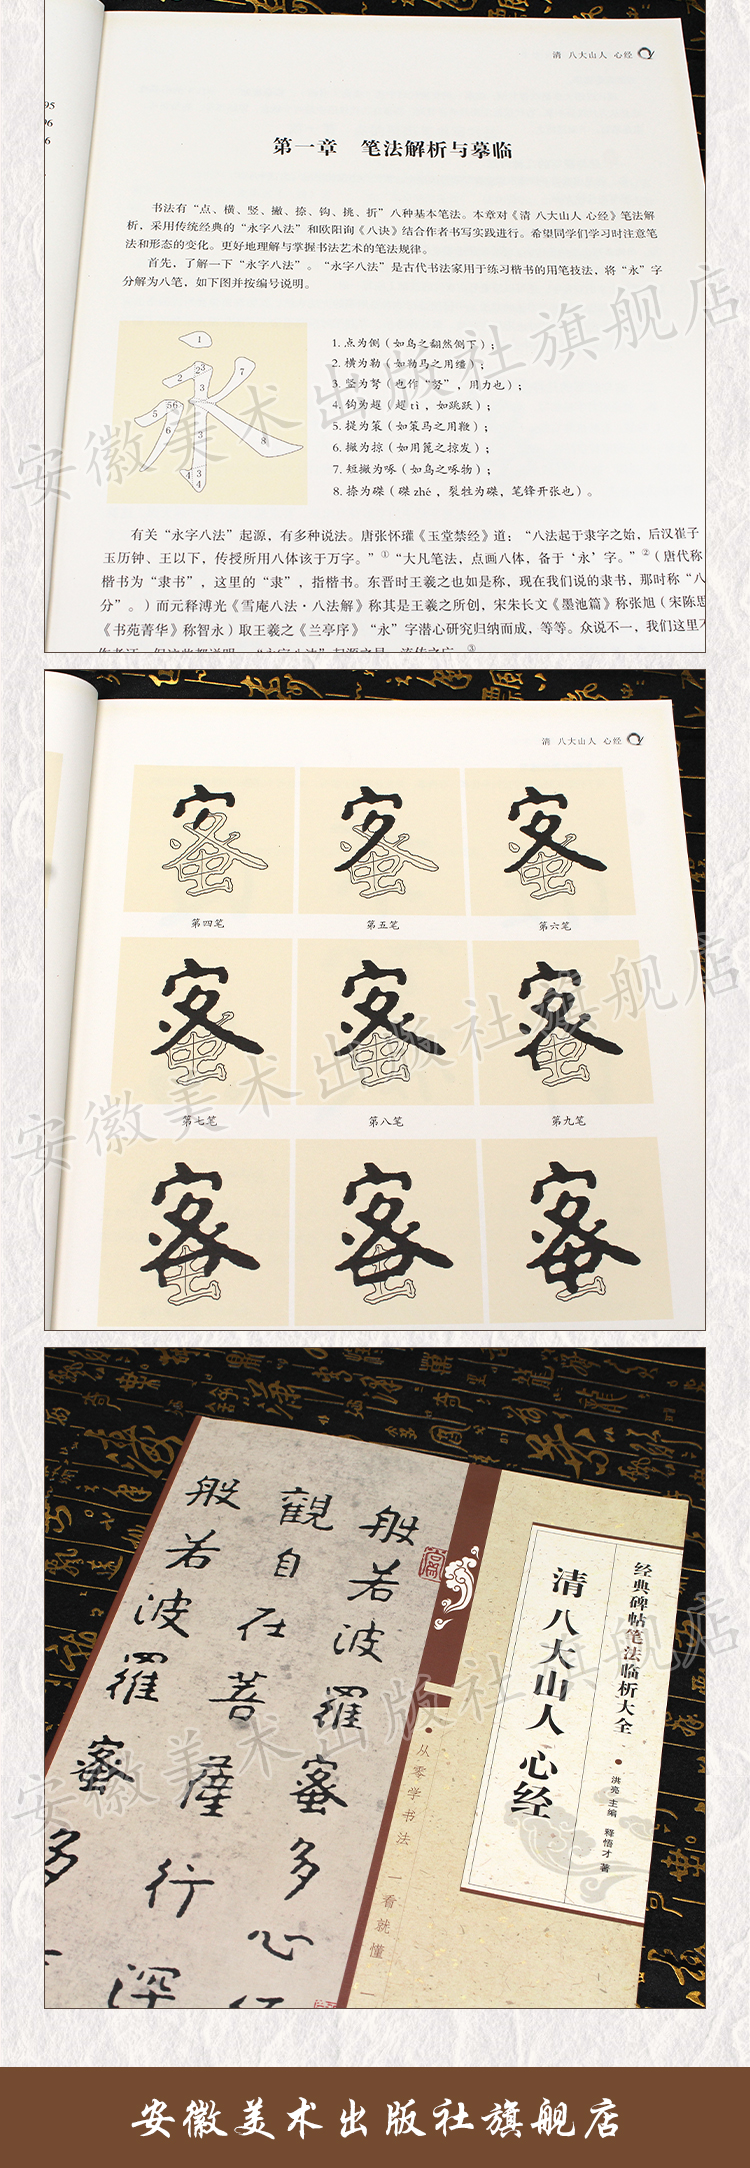 95
96
6
清 八大山人 心经
第一章 笔法解析与摹临
书法有“点、横、竖、撇、捺、钩、挑、折”八种基本笔法。本章对《清 八大山人 心经》笔法解
析，采用传统经典的“永字八法”和欧阳询《八诀》结合作者书写实践进行。希望同学们学习时注意笔
法和形态的变化。更好地理解与掌握书法艺术的笔法规律。
首先，了解一下“永字八法”。“永字八法”是古代书法家用于练习楷书的用笔技法，将“永”字
分解为八笔，如下图并按编号说明。
1
2 23 7
3
5 56
6 3 8
4 3
4
1. 点为侧（如鸟之翻然侧下）；
2. 横为勒（如勒马之用缰）；
3. 竖为努（也作“努”，用力也）；
4. 钩为趯（趯 tì，如跳跃）；
5. 提为策（如策马之用鞭）；
6. 撇为掠（如用篦之掠发）；
7. 短撇为啄（如鸟之啄物）；
8. 捺为磔（磔 zhé，裂牲为磔，笔锋开张也）。
有关“永字八法”起源，有多种说法。唐张怀瓘《玉堂禁经》道：“八法起于隶字之始，后汉崔子
玉历钟、王以下，传授所用八体该于万字。”① “大凡笔法，点画八体，备于‘永’字。”②（唐代称
楷书为“隶书”，这里的“隶”，指楷书。东晋时王羲之也如是称，现在我们说的隶书，那时称“八
分”。）而元释溥光《雪庵八法·八法解》称其是王羲之所创，宋朱长文《墨池篇》称张旭（宋陈思
《书苑菁华》称智永）取王羲之《兰亭序》“永”字潜心研究归纳而成，等等。众说不一，我们这里不
安徽美术出版社旗舰店
清 八大山人 心经
第四笔 第五笔 第六笔
第七笔 第八笔 第九笔
安徽美术出版社旗舰店
般若波羅蜜多心
觀自在菩薩行深
般若波羅蜜多
经典碑帖笔法临析大全
洪亮 主编 释悟才 著
清 八大山人 心经
从零学书法 一看就懂
安徽美术出版社旗舰店
安徽美术出版社旗舰店